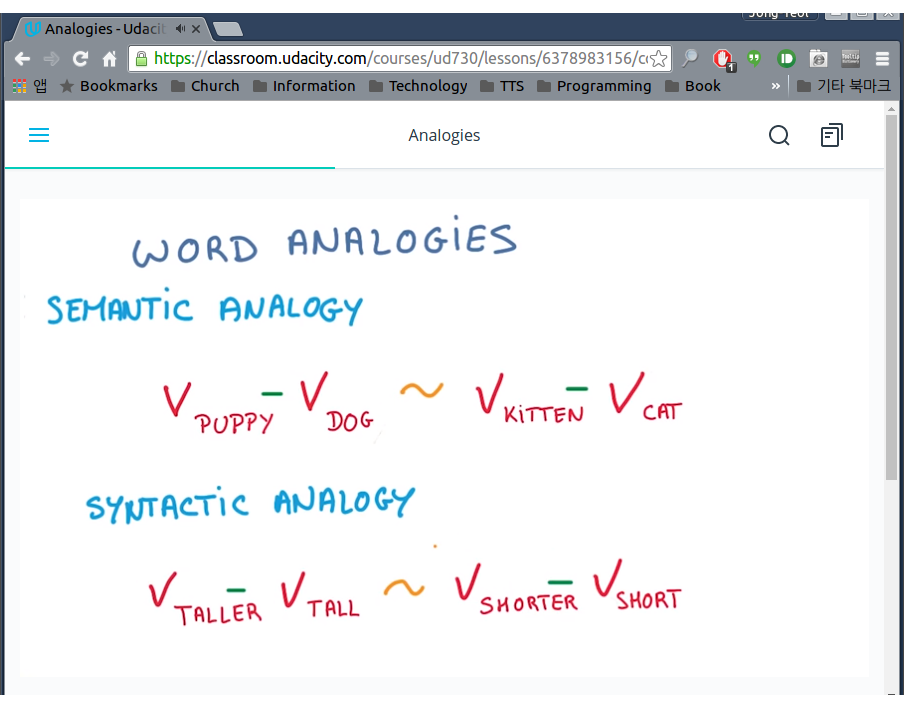 Analogies - Udacit
https://classroom.udacity.com/courses/ud730/lessons/6378983156/c
1
앱 Bookmarks Church Information Technology TTS Programming Book » 기타 북마크
Analogies
WORD ANALOGIES
SEMANTIC ANALOGY
V PUPPY - V DOG ~ V KITTEN - V CAT
SYNTACTIC ANALOGY
V TALLER - V TALL ~ V SHORTER - V SHORT